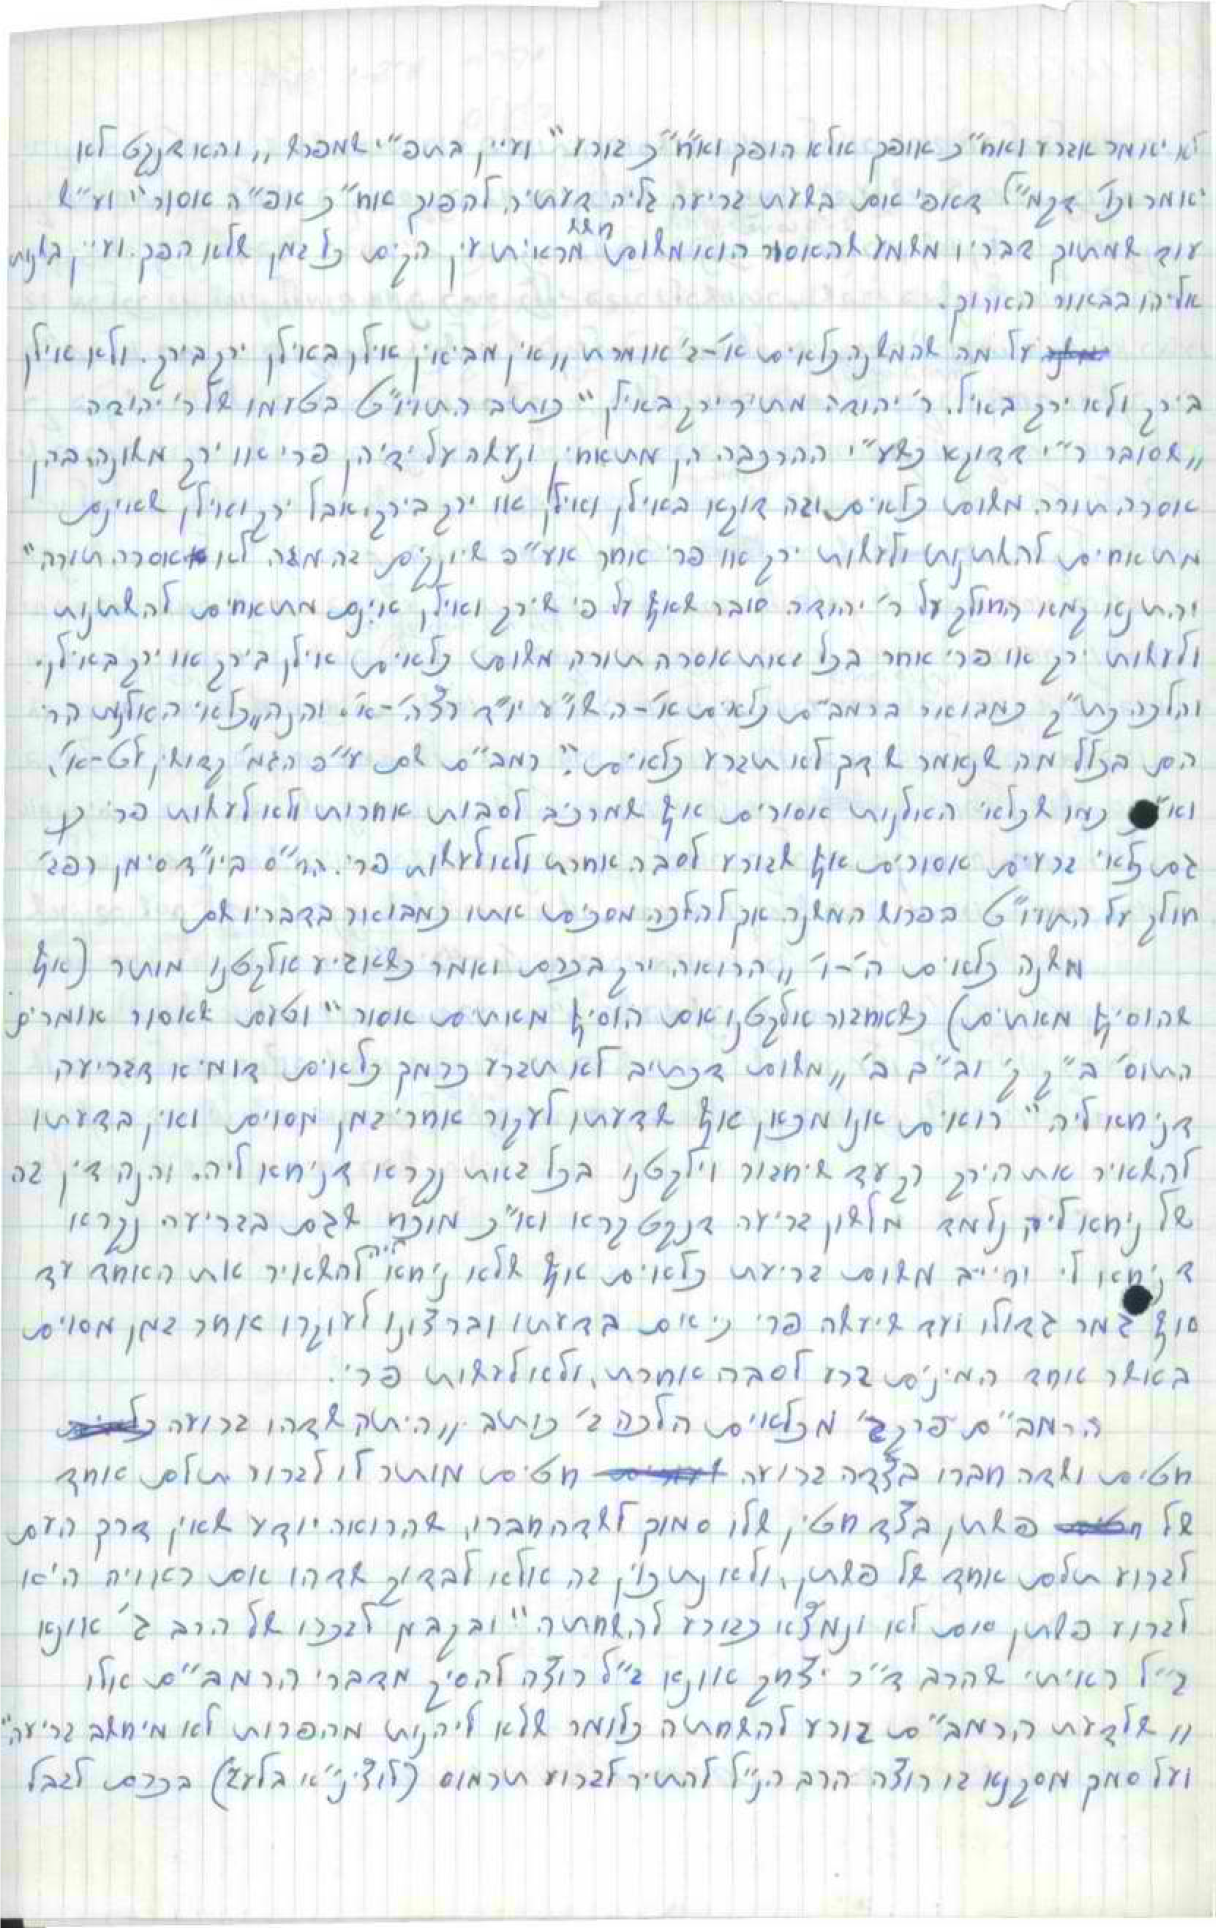 לא יאמר אזרע ואח"כ אופך אלא הופך ואח"כ זורע" ועיין בתפ"י שמפרש ,,והא דנקט לא
יאמר וכו' דקמ"ל דאפי' אם בשעת זריעה גליה דעתיה להפוך אח"כ אפ"ה אסור" וע"ש
עוד שמתוך דבריו משמע שהאסור הוא משום חשש מראית עין הקים כל זמן שלא הפך. ועיין בשנות
אליהו בבאור הארוך.
על מה שהמשנה כלאים א'-ז' אומרת ,,אין מביאין אילן באילן ירק בירק. ולא אילן
בירק ולא ירק באילן. ר' יהודה מתיר ירק באילן" כותב התויו"ט בטעמו של ר' יהודה
,,שסובר ר"י דדוקא כשע"י ההרכבה הן מתאחין ונעשה על ידיהן פרי או ירק משונה בהן
אסרה תורה משום כלאים וזה דוקא באילן ואילן או ירק בירק אבל ירק ואילן שאינם
מתאחים להשתנות ולעשות ירק או פרי אחר אע"פ שיונקים זה מזה לא אסרה תורה"
והתנא קמא החולק על ר' יהודה סובר שאף על פי שירק ואילן אינם מתאחים להשתנות
ולעשות ירק או פרי אחר בכל זאת אסרה תורה משום כלאים אילן בירק או ירק באילן.
והלכה כת"ק כמבואר ברמב"ם כלאים א'-ה שו"ע יו"ד רצה'-א'. והנה ,,כלאי האילנות הרי
הם בכלל מה שנאמר שדך לא תזרע כלאים". רמב"ם שם ע"פ הגמ' קדושין לט-א',
כמו שכלאי האילנות אסורים אף שמרכיב לסבות אחרות ולא לעשות פרי כן
גם כלאי זרעים אסורים אף שזורע לסבה אחרת ולא לעשות פרי. הח"ס ביו"ד סימן רפז'
חולק על התויו"ט בפרוש המשנה אך להלכה מסכים אתו כמבואר בדבריו שם
משנה כלאים ה'-ו' ,,הרואה ירק בכרם ואמר כשאגיע אלקטנו מותר (אף
שהוסיף מאתים) כשאחזור אלקטנו אם הוסיף מאתים אסור" וטעם שאסור אומרים
התוס' ב"ק ק' וב"ב ב' ,,משום דכתיב לא תזרע כרמך כלאים דומיא דזריעה
דניחא ליה" רואים אנו מכאן אף שדעתו לעקור אחרי זמן מסוים ואין בדעתו
להשאיר את הירק רק עד שיחזור וילקטנו בכל זאת נקרא דניחא ליה. והנה דין זה
של ניחא ליה נלמד מלשון זריעה דנקט קרא וא"כ מוכח שגם בזריעה נקרא
דניחא לי' וחייב משום זריעת כלאים אף שלא ניחא ליה להשאיר את האחד עד
סוף גמר גדולו ועד שיעשה פרי כי אם בדעתו וברצונו לעוקרו אחר זמן מסוים
באשר אחד המינים זרע לסבה אחרת, ולא לעשות פרי.
הרמב"ם פרק ג' מכלאים הלכה ז' כותב ,,היתה שדהו זרועה
חטים ושדה חברו בצדה זרועה חטים מותר לו לזרוע תלם אחד
של פשתן בצד חטין שלו סמוך לשדה חברו, שהרואה יודע שאין דרך העם
לזרוע תלם אחד של פשתן, ולא נתכוין זה אלא לבדוק שדהו אם ראויה היא
לזרוע פשתן אם לא ונמצא כזורע להשחתה" ובקבץ לזכרו של הרב י' אונא
ז"ל ראיתי שהרב ד"ר יצחק אונא ז"ל רוצה להסיק מדברי הרמב"ם אלו
,,שלדעת הרמב"ם זורע להשחתה כלומר שלא ליהנות מהפרות לא מיחשב זריעה"
ועל סמך מסקנא זו רוצה הרב הנ"ל להתיר לזרוע תרמוס (לופיני"א בלעז) בכרם לזבל